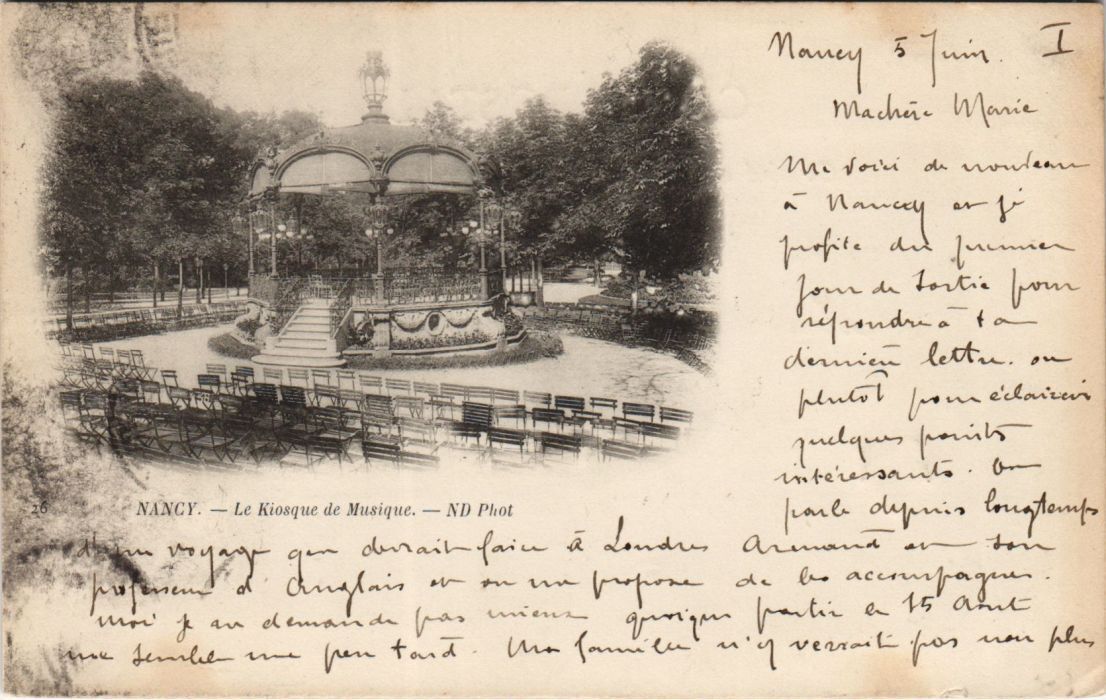 Nancy 5 Juin. I
Machère Marie
Me voici de nouveau
à Nancy et je
profite du premier
jour de sortie pour
répondre à ta
dernière lettre. ou
plutôt pour éclaircir
quelques points
intéressants. On
parle depuis longtemps
d'un voyage que devrait faire à Londres Armand et son
professeur d'Anglais et on me propose de les accompagner.
Moi je ne demande pas mieux quoique partir le 15 Août
me semble un peu tard. Ma famille n'y verrait pas non plus
26 NANCY. — Le Kiosque de Musique. — ND Phot